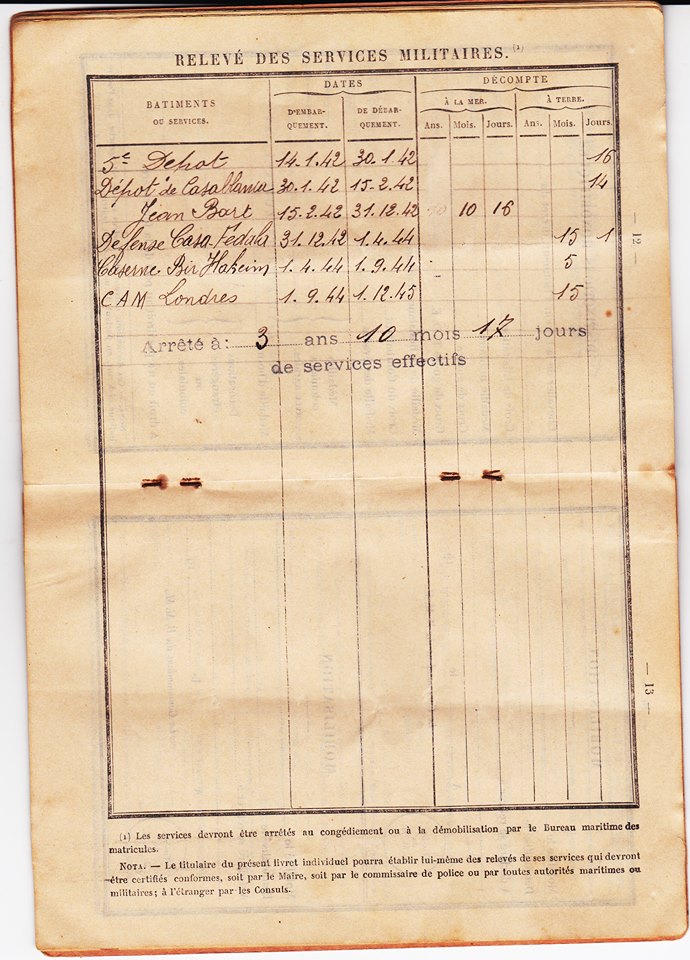 RELEVÉ DES SERVICES MILITAIRES. (1)
BATIMENTS OU SERVICES. DATES DÉCOMPTE
D'EMBAR-QUEMENT. DE DÉBAR-QUEMENT. À LA MER. À TERRE.
Ans. Mois. Jours. Ans. Mois. Jours.
5e Dépot 14.1.42 30.1.42 16
Dépôt de Casablanca 30.1.42 15.2.42 14
Jean Bart 15.2.42 31.12.42 10 16
Défense Casa-Fedala 31.12.42 1.4.44 15 1
Caserne Bir Hakeim 1.4.44 1.9.44 5
CAM Londres 1.9.44 1.12.45 15
Arrêté à: 3 ans 10 mois 17 jours
de services effectifs
— 12
— 13 —
(1) Les services devront être arrêtés au congédiement ou à la démobilisation par le Bureau maritime des
matricules.
NOTA. — Le titulaire du présent livret individuel pourra établir lui-même des relevés de ses services qui devront
être certifiés conformes, soit par le Maire, soit par le commissaire de police ou par toutes autorités maritimes ou
militaires; à l'étranger par les Consuls.